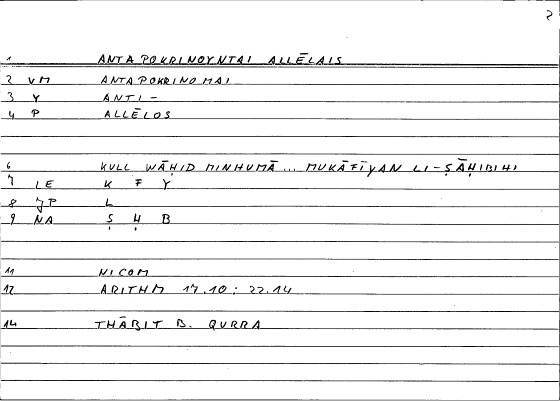 2
1 ANTAPOKRINOYNTAI ALLĒLAIS
2 VM ANTAPOKRINOMAI
3 Y ANTI-
4 P ALLĒLOS
6 KULL WĀḤID MINHUMĀ... MUKĀFIYAN LI-ṢĀḤIBIHI
7 LE K F Y
8 JP L
9 NA Ṣ Ḥ B
11 NICOM
12 ARITHM 17.10; 22.14
14 THĀBIT B. QURRA